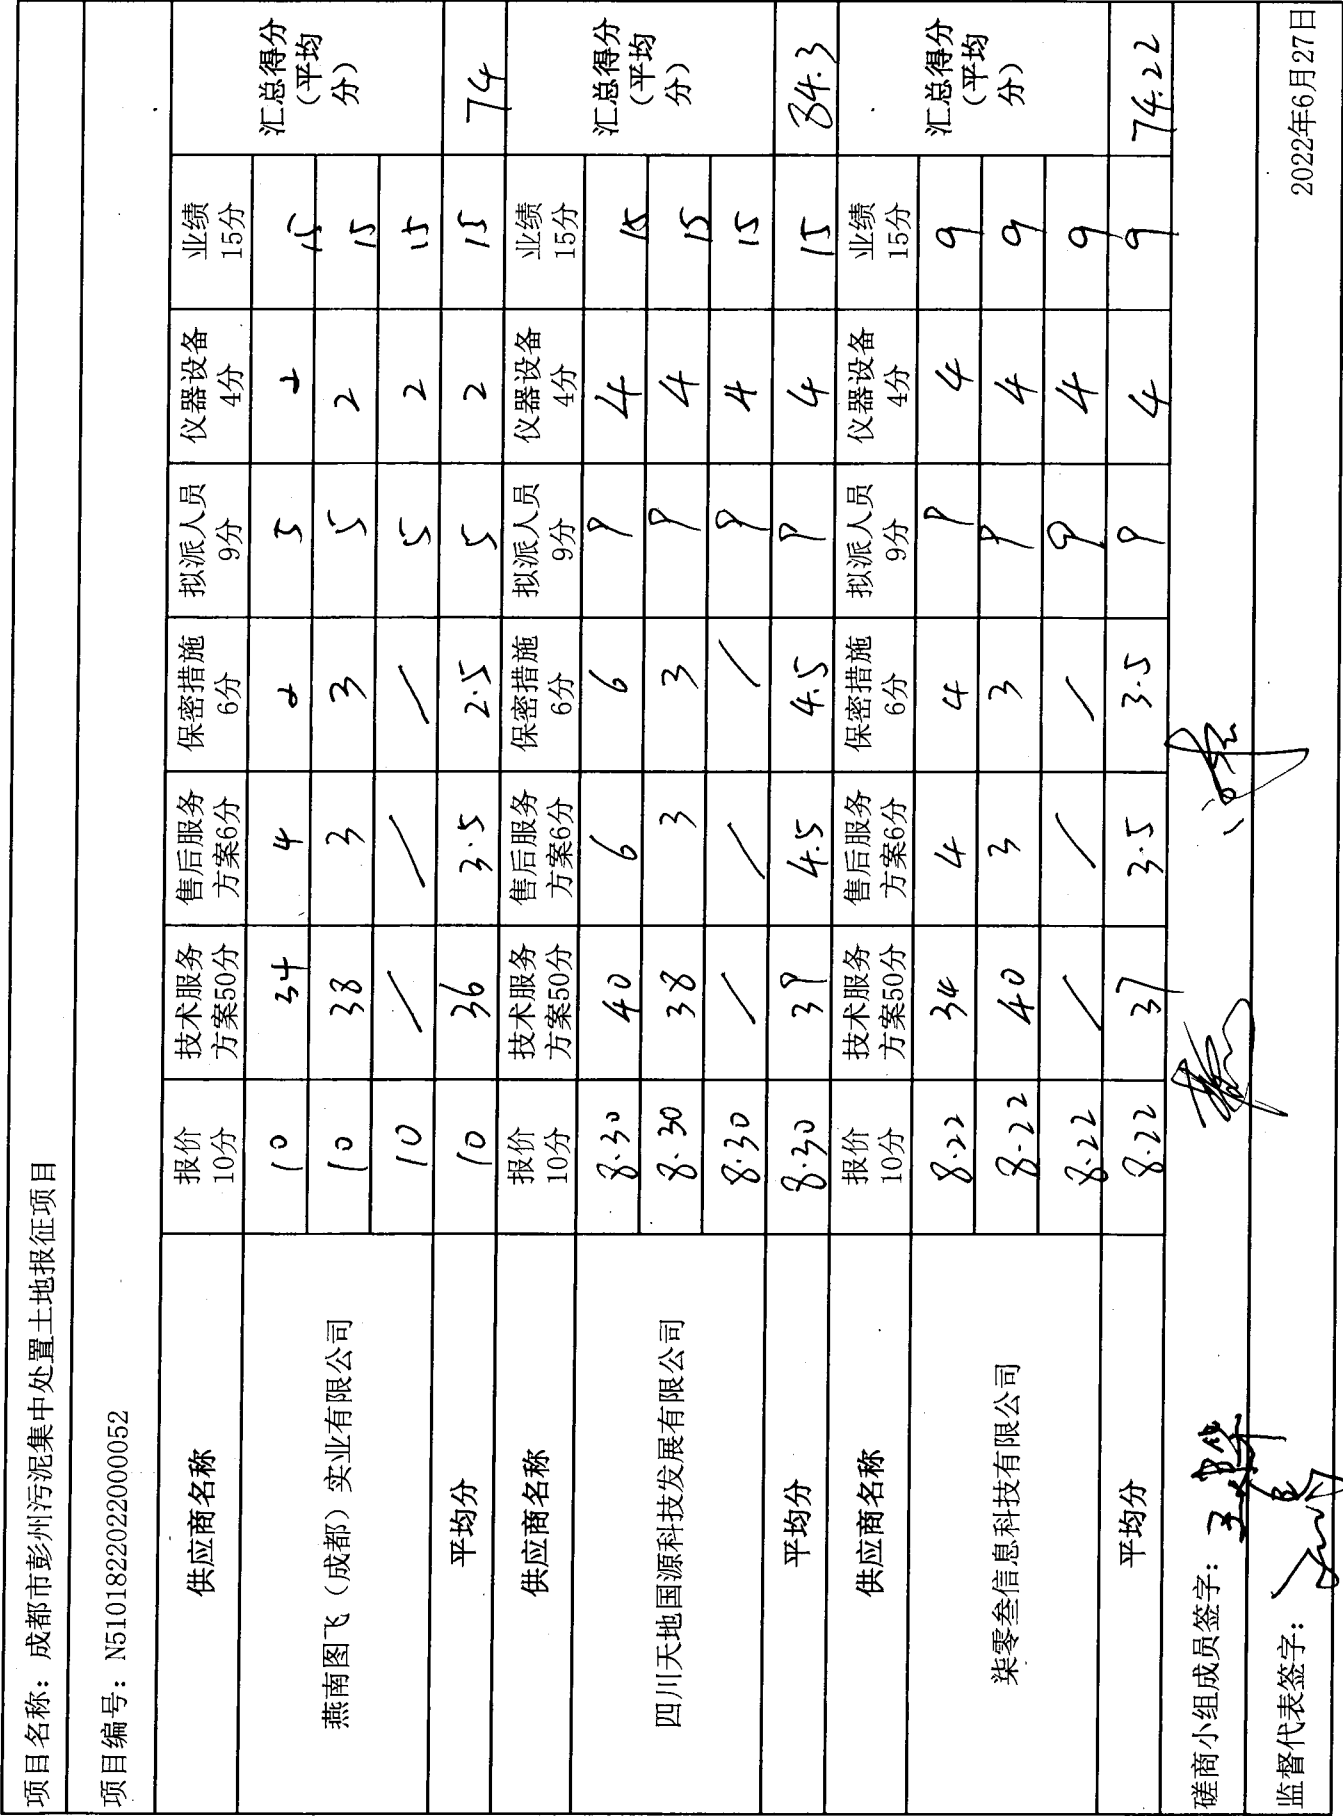 项目名称: 成都市彭州污泥集中处置土地报征项目
项目编号: N5101822022000052
供应商名称 报价10分 技术服务方案50分 售后服务方案6分 保密措施6分 拟派人员9分 仪器设备4分 业绩15分 汇总得分(平均分)
燕南图飞（成都）实业有限公司
10 34 4 2 5 2 15
10 38 3 3 5 2 15
10 / / / 5 2 15
平均分 10 36 3.5 2.5 5 2 15 74
供应商名称 报价10分 技术服务方案50分 售后服务方案6分 保密措施6分 拟派人员9分 仪器设备4分 业绩15分 汇总得分(平均分)
四川天地国源科技发展有限公司
8.30 40 6 6 9 4 15
8.30 38 3 3 9 4 15
8.30 / / / 9 4 15
平均分 8.30 39 4.5 4.5 9 4 15 84.3
供应商名称 报价10分 技术服务方案50分 售后服务方案6分 保密措施6分 拟派人员9分 仪器设备4分 业绩15分 汇总得分(平均分)
柒零叁信息科技有限公司
8.22 34 4 4 9 4 9
8.22 40 3 3 9 4 9
8.22 / / / 9 4 9
平均分 8.22 37 3.5 3.5 9 4 9 74.22
磋商小组成员签字:
监督代表签字: 2022年6月27日